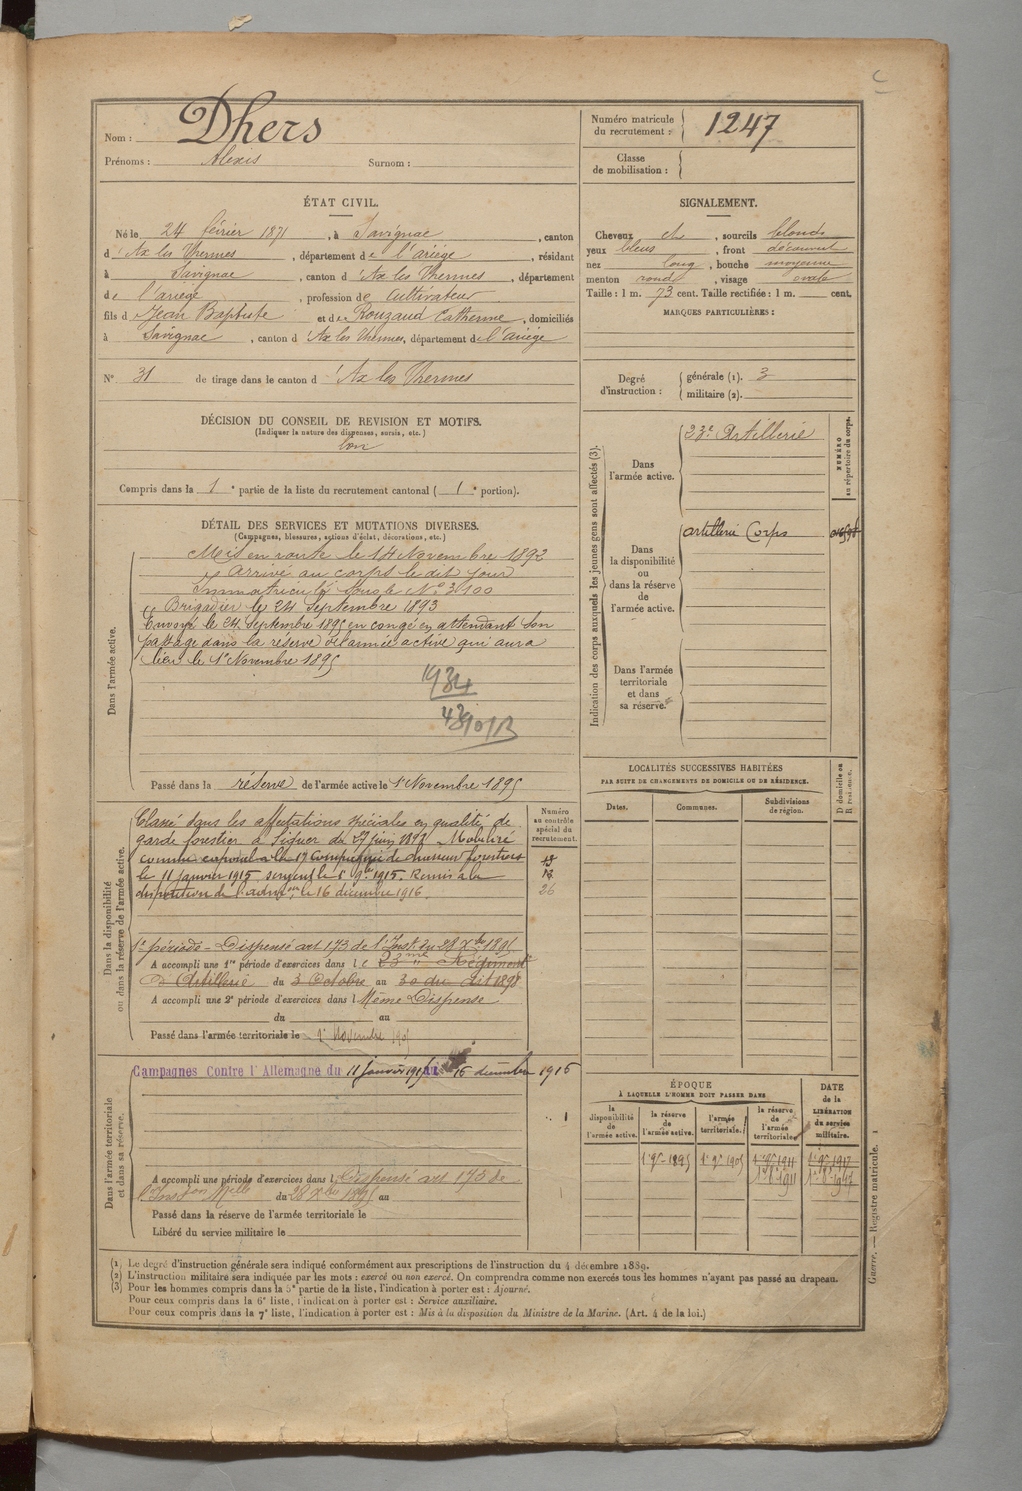 C
Nom : Dhers
Prénoms : Alexis Surnom :
Numéro matricule du recrutement : 1247
Classe de mobilisation :
ÉTAT CIVIL.
Né le 24 février 1871, à Savignac, canton
d'Ax les Thermes, département de l'ariège, résidant
à Savignac, canton d'Ax les Thermes, département
de l'ariège, profession de cultivateur
fils d Jean Baptiste et de Rouzaud Catherine, domiciliés
à Savignac, canton d'Ax les Thermes, département de l'ariège
N° 31 de tirage dans le canton d'Ax les Thermes
SIGNALEMENT.
Cheveux et, sourcils blonds
yeux bleus, front découvert
nez long, bouche moyenne
menton rond, visage ovale
Taille : 1 m. 73 cent. Taille rectifiée : 1 m. cent.
MARQUES PARTICULIÈRES :
Degré d'instruction : générale (1). 3
militaire (2).
DÉCISION DU CONSEIL DE REVISION ET MOTIFS.
(Indiquer la nature des dispenses, sursis, etc.)
bon
Compris dans la 1e partie de la liste du recrutement cantonal (1e portion).
DÉTAIL DES SERVICES ET MUTATIONS DIVERSES.
(Campagnes, blessures, actions d'éclat, décorations, etc.)
Dans l'armée active.
Mis en route le 14 Novembre 1892
Arrivé au corps le dit jour
Immatriculé sous le N° 3100
Brigadier le 24 Septembre 1893
Envoyé le 24 Septembre 1895 en congé en attendant son
passage dans la réserve de l'armée active qui aura
lieu le 1er Novembre 1895
1934
Passé dans la réserve de l'armée active le 1er Novembre 1895
Indication des corps auxquels les jeunes gens sont affectés (3).
NUMÉRO au répertoire du corps.
Dans l'armée active.
23e Artillerie
Dans la disponibilité ou dans la réserve de l'armée active.
artillerie Corps
Dans l'armée territoriale et dans sa réserve.
LOCALITÉS SUCCESSIVES HABITÉES
PAR SUITE DE CHANGEMENTS DE DOMICILE OU DE RÉSIDENCE.
Dates. Communes. Subdivisions de région. D domicile ou R résidence.
Dans la disponibilité ou dans la réserve de l'armée active.
Numéro au contrôle spécial du recrutement.
Classé dans les affectations spéciales en qualité de
garde forestier à Siguer du 27 juin 1897 Mobilisé
comme caporal à la 17 Compagnie de chasseur forestiers
le 11 janvier 1915, sergent le 1er 9bre 1915. Remis à la
disposition de l'admon, le 16 décembre 1916.
26
1re période - Dispensé art 173 de l'Inst du 28 Xbre 1895
A accompli une 1re période d'exercices dans le 23me Régiment
d'Artillerie du 3 Octobre au 30 du dit 1898
A accompli une 2e période d'exercices dans l Même Dispense
du au
Passé dans l'armée territoriale le 1er Novembre 1905
Dans l'armée territoriale et dans sa réserve.
Campagnes Contre l'Allemagne du 11 janvier 1915 au 16 décembre 1916
A accompli une période d'exercices dans l Dispensé art 173 de
l'Inston Melle du 28 Xbre 1895 au
Passé dans la réserve de l'armée territoriale le
Libéré du service militaire le
ÉPOQUE
À LAQUELLE L'HOMME DOIT PASSER DANS
la disponibilité de l'armée active. la réserve de l'armée active. l'armée territoriale. la réserve de l'armée territoriale.
DATE de la LIBÉRATION du service militaire.
1er 9bre 1895 1er 9bre 1905 1er 9bre 1911 1er 9bre 1917
Guerre. — Registre matricule. 1
(1) Le degré d'instruction générale sera indiqué conformément aux prescriptions de l'instruction du 4 décembre 1889.
(2) L'instruction militaire sera indiquée par les mots : exercé ou non exercé. On comprendra comme non exercés tous les hommes n'ayant pas passé au drapeau.
(3) Pour les hommes compris dans la 5e partie de la liste, l'indication à porter est : Ajourné.
Pour ceux compris dans la 6e liste, l'indication à porter est : Service auxiliaire.
Pour ceux compris dans la 7e liste, l'indication à porter est : Mis à la disposition du Ministre de la Marine. (Art. 4 de la loi.)